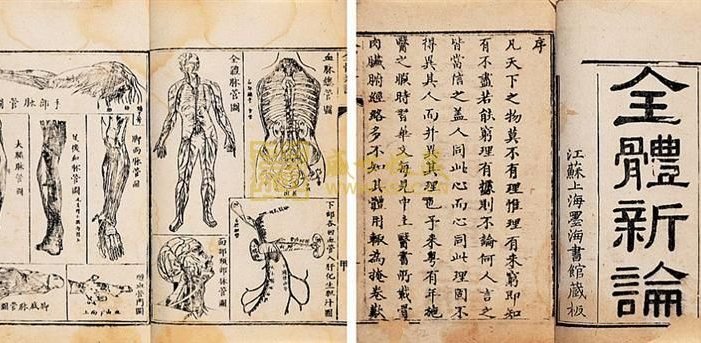 全體新論
江蘇上海墨海書館藏板
序
凡天下之物莫不有理惟理有未窮即知
有不盡若能窮理有據則不論何人言之
皆當信之蓋人同此心而心同此理固不
得異其人而并異其理也予來粵有年施
醫之暇時習華文每見中土醫書所載骨
肉臟腑經絡多不知其體用輒為掩卷歎
血脉總管圖
下部各迴血管入肝化生汁圖
甲
全體脉管圖
面部頸部脉管圖
手部脉管圖
脚面脉管圖
足後面脉管圖
大腿脉管圖
脚底脉管圖